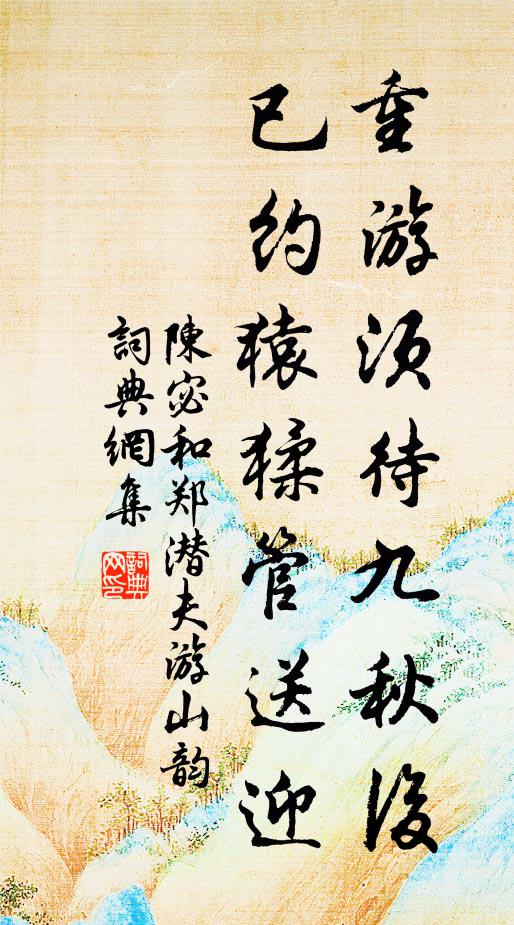 重游须待九秋後
已约猿猱管送迎
陳宓和郑潜夫游山韵
詞典網集
詞典网印